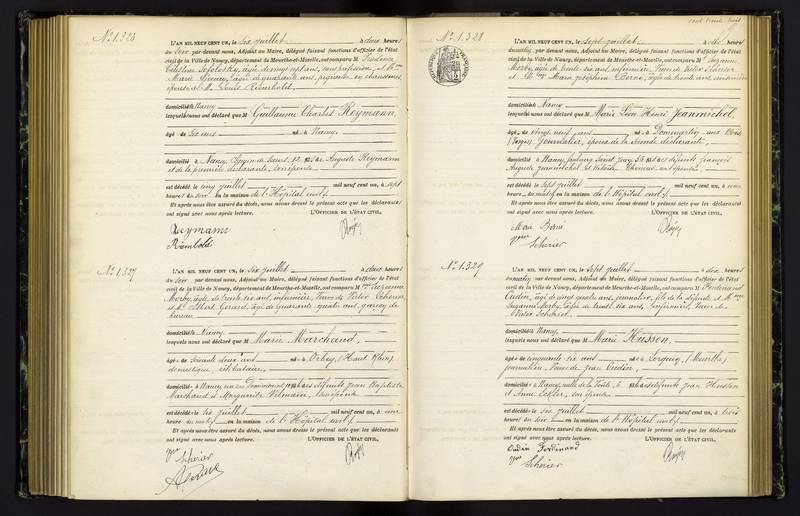 N° 1.326
L'AN MIL NEUF CENT UN, le six juillet à deux heures
du soir, par devant nous, Adjoint au Maire, délégué faisant fonctions d'officier de l'état
civil de la Ville de Nancy, département de Meurthe-et-Moselle, ont comparu M
âgée de vingt sept ans, sans profession, et
Marie âgée de quarante ans, en chaussures,
épouse de M. Louis
domiciliés à Nancy
lesquels nous ont déclaré que M Guillaume Charles Reymann,
âgé de six ans né à Nancy.
domicilié à Nancy, 12, fils de Auguste Reymann
et de la première déclarante, son épouse
est décédé le cinq juillet mil neuf cent un, à sept
heures du soir en la maison de l'Hôpital civil
Et après nous être assuré du décès, nous avons dressé le présent acte que les déclarants
ont signé avec nous après lecture. L'OFFICIER DE L'ÉTAT CIVIL,
Reymann
N° 1.327
L'AN MIL NEUF CENT UN, le six juillet à deux heures
du soir par devant nous, Adjoint au Maire, délégué faisant fonctions d'officier de l'état
civil de la Ville de Nancy, département de Meurthe-et-Moselle, ont comparu M Suzanne
Morby, âgée de trente six ans, infirmière, Veuve de Victor
et M. Albert Gérard, âgé de quarante quatre ans, garçon de
bureau
domiciliés à Nancy
lesquels nous ont déclaré que M Marie Marchand,
âgée de soixante deux ans née à Orbey (Haut Rhin)
domestique, célibataire,
domiciliée à Nancy, rue fille des défunts Jean Baptiste
Marchand et Marguerite Vilmain, son épouse
est décédée le six juillet mil neuf cent un, à une
heure du en la maison de l'Hôpital civil
Et après nous être assuré du décès, nous avons dressé le présent acte que les déclarants
ont signé avec nous après lecture. L'OFFICIER DE L'ÉTAT CIVIL,
Vve
Scherier
N° 1.328
L'AN MIL NEUF CENT UN, le sept juillet à dix heures
du matin, par devant nous, Adjoint au Maire, délégué faisant fonctions d'officier de l'état
civil de la Ville de Nancy, département de Meurthe-et-Moselle, ont comparu M Suzanne
Morby, âgée de trente six ans, infirmière, Veuve de Victor
et Marie Joséphine Berné, âgée de trente ans,
domiciliés à Nancy
lesquels nous ont déclaré que M Marie Léon Henri Jeanmichel,
âgé de vingt neuf ans né à Dommartin aux Bois
(Vosges) Journalier, époux de la Seconde déclarante,
domicilié à Nancy, faubourg Saint fils des défunts François
Auguste Jeanmichel et Thomas son épouse,
est décédé le sept juillet mil neuf cent un, à
heures du matin en la maison de l'Hôpital civil
Et après nous être assuré du décès, nous avons dressé le présent acte que les déclarants
ont signé avec nous après lecture. L'OFFICIER DE L'ÉTAT CIVIL,
Marie Berné
Vve
Scherier
N° 1.329
L'AN MIL NEUF CENT UN, le sept juillet à dix heures
du matin, par devant nous, Adjoint au Maire, délégué faisant fonctions d'officier de l'état
civil de la Ville de Nancy, département de Meurthe-et-Moselle, ont comparu M Ferdinand
Oudin, âgé de vingt quatre ans, journalier, fils de la défunte et Mme
Suzanne Morby, âgée de trente six ans, infirmière, Veuve de
Victor
domiciliés à Nancy,
lesquels nous ont déclaré que M Marie Husson,
âgée de cinquante six ans née à (Meurthe)
journalière, Veuve de Jean Oudin,
domiciliée à Nancy, 6 fille des défunts Jean Husson
et Anne son épouse
est décédée le six juillet mil neuf cent un, à trois
heures du soir en la maison de l'Hôpital civil
Et après nous être assuré du décès, nous avons dressé le présent acte que les déclarants
ont signé avec nous après lecture. L'OFFICIER DE L'ÉTAT CIVIL,
Oudin Ferdinand
Vve
Scherier